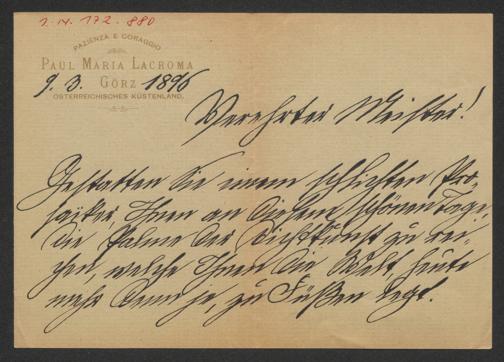 J.N. 172.880
PAZIENZA E CORAGGIO
PAUL MARIA LACROMA
GÖRZ
ÖSTERREICHISCHES KÜSTENLAND.
9. 3. 1896
Verehrter Meister!
Gestatten Sie einem schlichten Pro-
saiker, Ihnen an diesem schönen Tage
die Palme der Dichtkunst zu rei-
chen, welche Ihnen die Welt, heute
mehr denn je, zu Füßen legt.